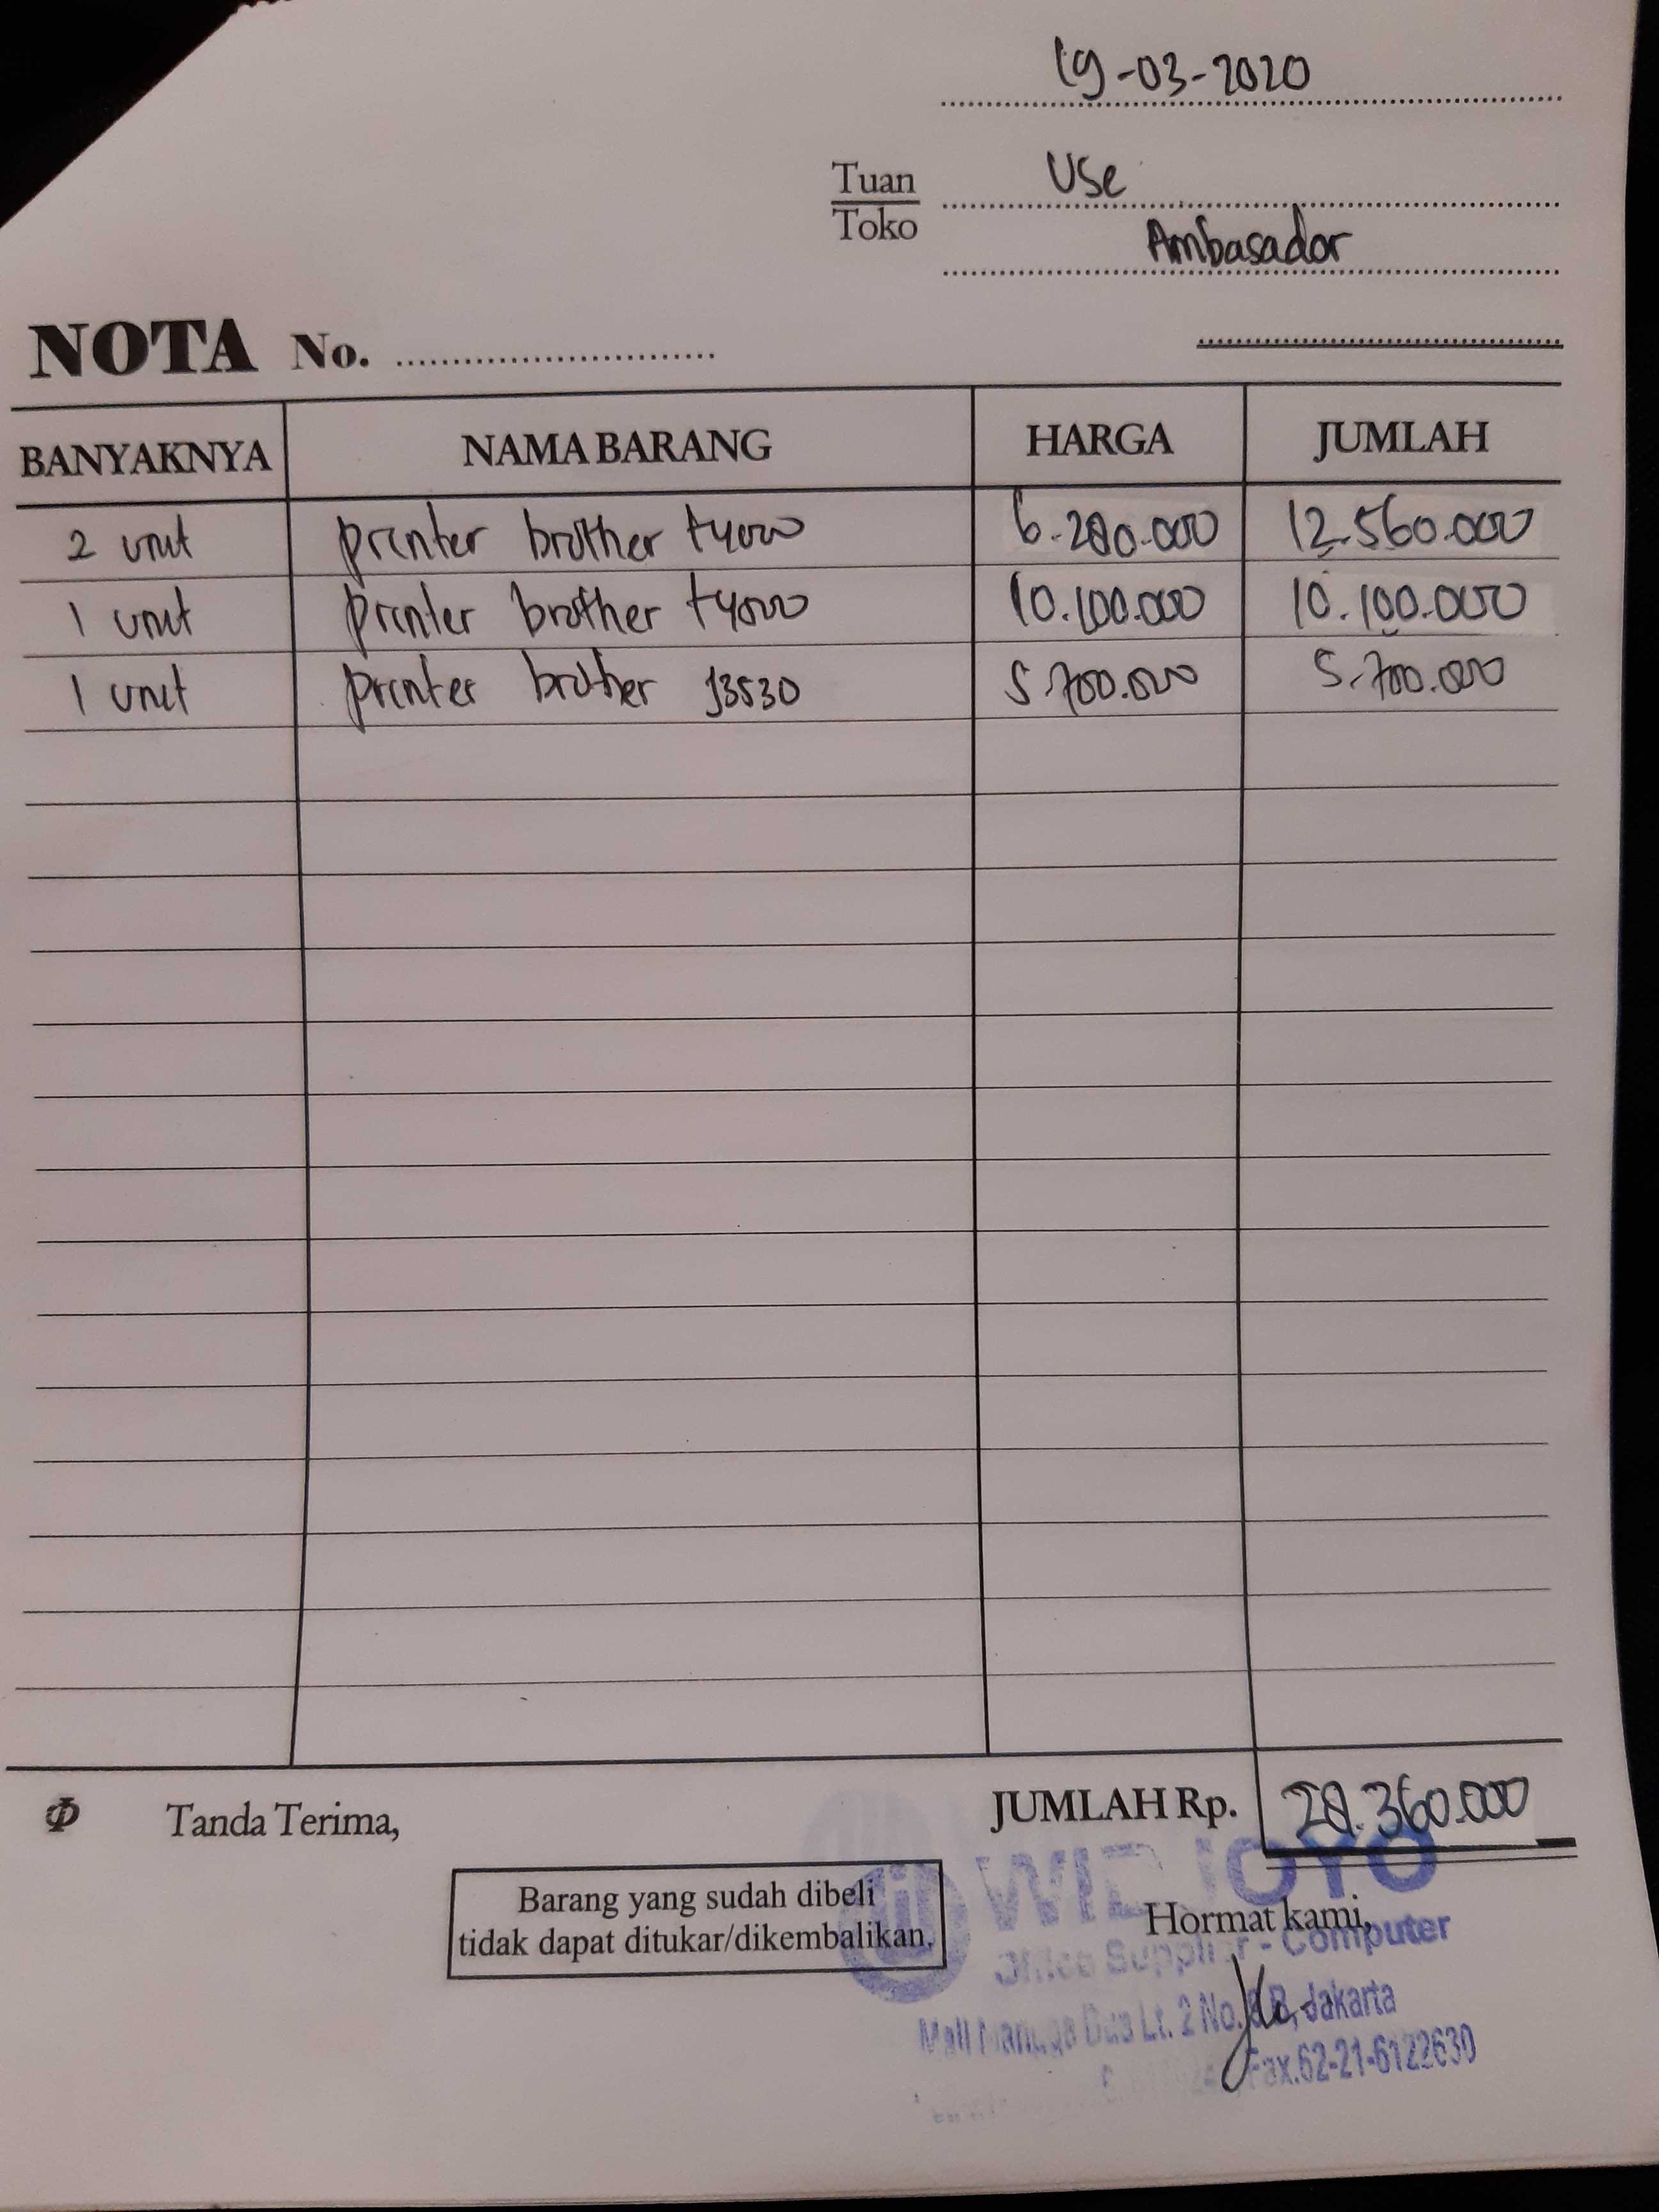 19-03-2020
Tuan
Toko
Use
Ambasador
NOTA No.
BANYAKNYA NAMA BARANG HARGA JUMLAH
2 unit printer brother t4000 6.280.000 12.560.000
1 unit printer brother t4000 10.100.000 10.100.000
1 unit printer brother J3530 5.700.000 5.700.000
Tanda Terima,
JUMLAH Rp. 28.360.000
Barang yang sudah dibeli
tidak dapat ditukar/dikembalikan.
Hormat kami,
Office Supplier - Computer
Mall Mangga Dua Lt. 2 No. Jakarta
Fax.62-21-6122630